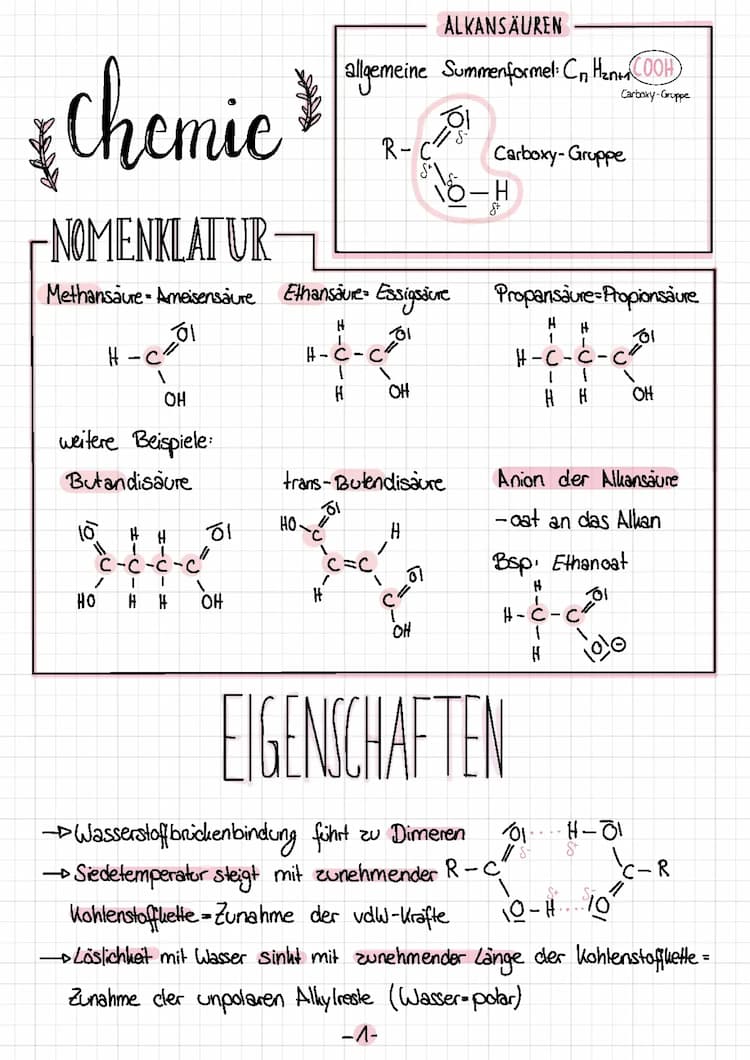 ALKANSÄUREN
chemie
allgemeine Summenformel: Cn H2n+1 COOH
Carboxy-Gruppe
R-C
O
δ-
δ+
δ-
O-H
δ+
Carboxy-Gruppe
NOMENKLATUR
Methansäure = Ameisensäure
H-C
O
OH
Ethansäure = Essigsäure
H
H-C-C
O
H
OH
Propansäure = Propionsäure
H H
H-C-C-C
O
H H
OH
weitere Beispiele:
Butandisäure
O H H O
C-C-C-C
HO H H OH
trans-Butendisäure
HO-C
O
H
C=C
H
C
O
OH
Anion der Alkansäure
-oat an das Alkan
Bsp: Ethanoat
H
H-C-C
O
H
O⊖
EIGENSCHAFTEN
→ Wasserstoffbrückenbindung führt zu Dimeren
→ Siedetemperatur steigt mit zunehmender
Kohlenstoffkette = Zunahme der vdW-Kräfte
O····H-O
δ- δ+
R-C
C-R
δ+ δ-
O-H····O
→ Löslichkeit mit Wasser sinkt mit zunehmender Länge der Kohlenstoffkette =
Zunahme der unpolaren Alkylreste (Wasser=polar)
-1-